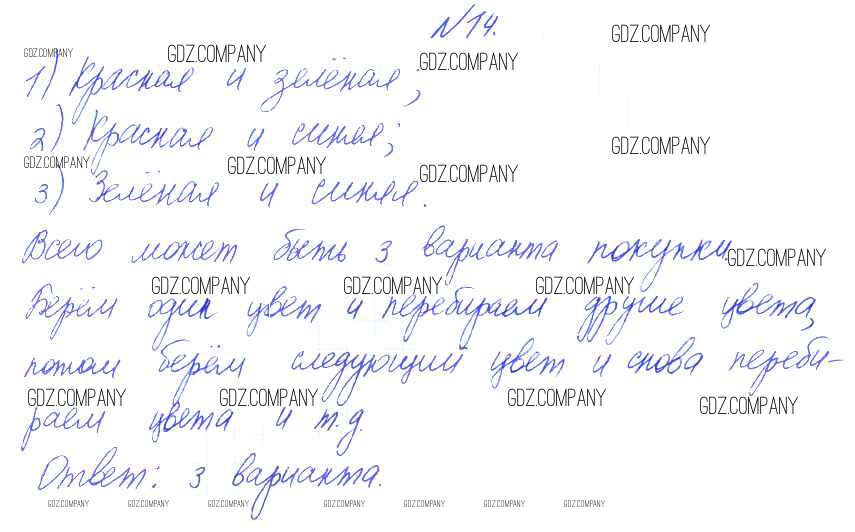 №14.
GDZ.COMPANY GDZ.COMPANY GDZ.COMPANY GDZ.COMPANY
1) Красная и зелёная;
2) Красная и синяя;
GDZ.COMPANY GDZ.COMPANY GDZ.COMPANY GDZ.COMPANY
3) Зелёная и синяя.
Всего может быть 3 варианта покупки.
GDZ.COMPANY
GDZ.COMPANY GDZ.COMPANY GDZ.COMPANY
Берём один цвет и перебираем другие цвета,
потом берём следующий цвет и снова переби-
GDZ.COMPANY GDZ.COMPANY GDZ.COMPANY GDZ.COMPANY
раем цвета и т.д.
Ответ: 3 варианта.
GDZ.COMPANY GDZ.COMPANY GDZ.COMPANY GDZ.COMPANY GDZ.COMPANY GDZ.COMPANY GDZ.COMPANY